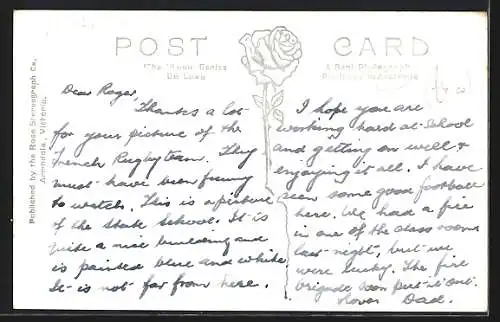 POST CARD
The "Rose Series"
De Luxe
A Real Photograph
Published by the Rose Stereograph Co.,
Armadale, Victoria.
Dear Roger,
Thanks a lot
for your picture of the
French Rugby team. They
must have been funny
to watch. This is a picture
of the State School. It is
quite a nice building and
is painted blue and white
It is not far from here.
I hope you are
working hard at School
and getting on well &
enjoying it all. I have
seen some good football
here. We had a fire
in one of the class rooms
last night, but we
were lucky. The fire
brigade soon put it out.
Love Dad.